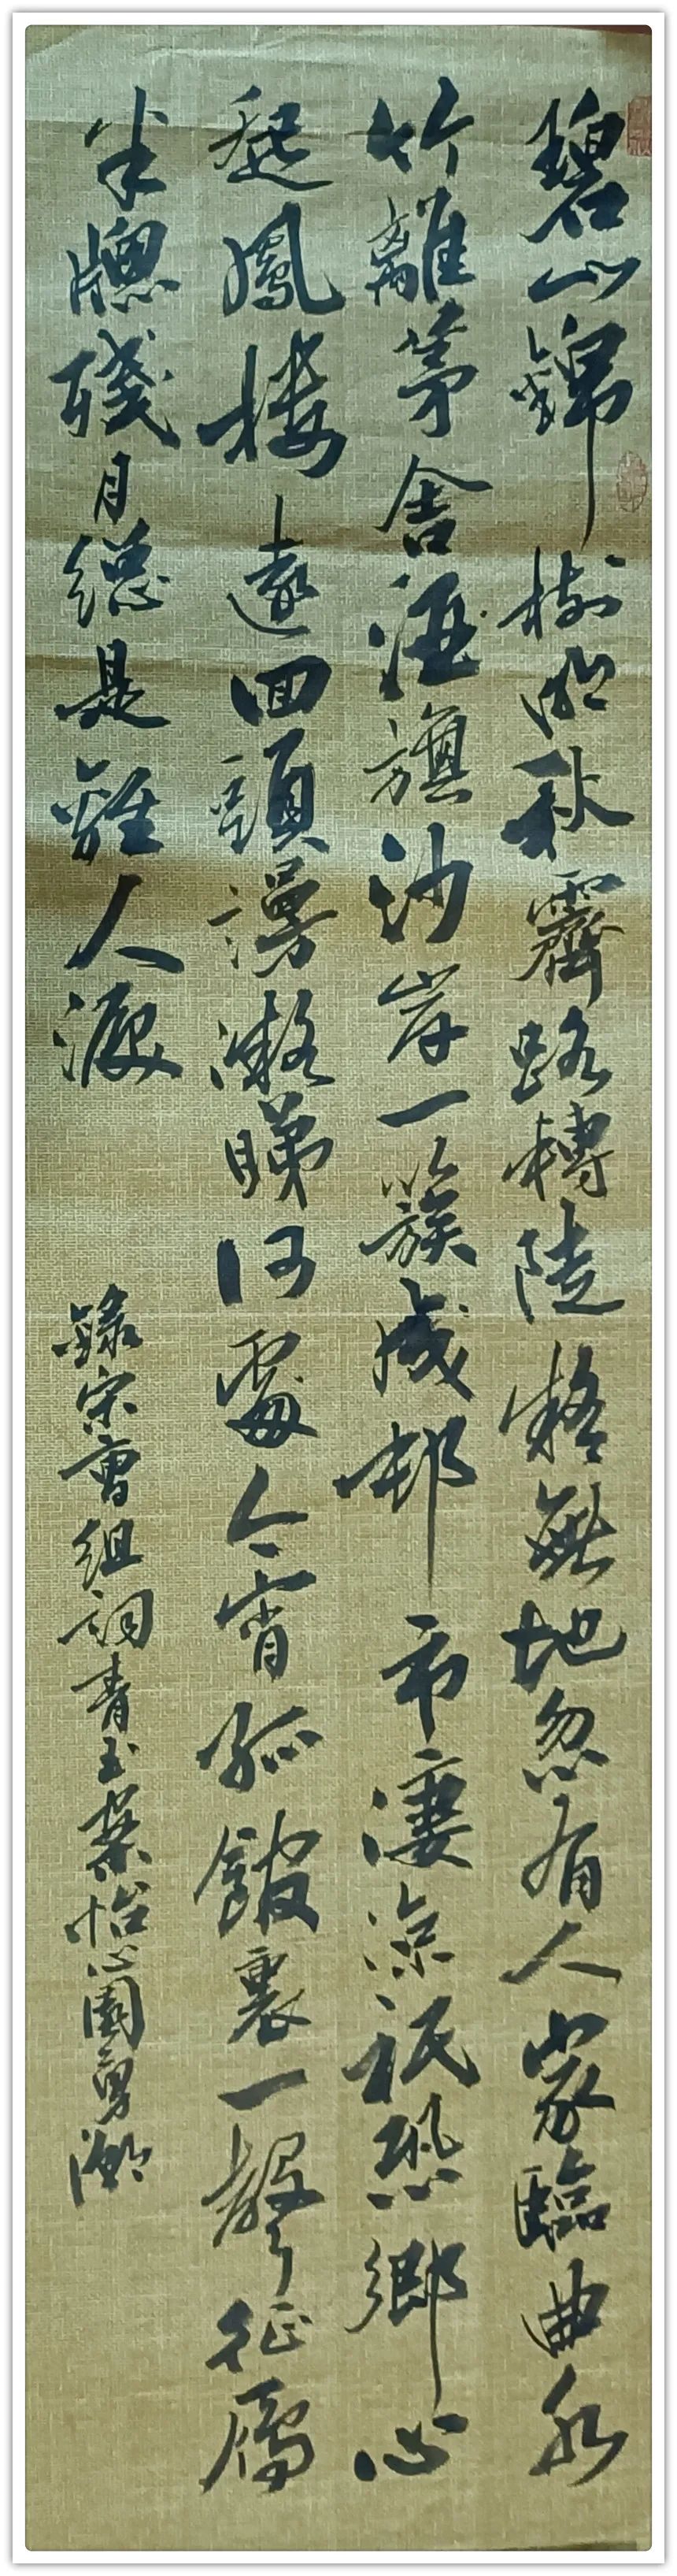 碧山錦樹明秋霽路轉陡疑無地忽有人家臨曲水
竹離茅舍酒旗沙岸一簇成邨市淒涼祇恐鄉心
起鳳樓遠回頭謾凝睇何處今宵孤館裏一聲征雁
半牕殘月總是離人淚
錄宋曹組詞青玉案怡心園勇潮